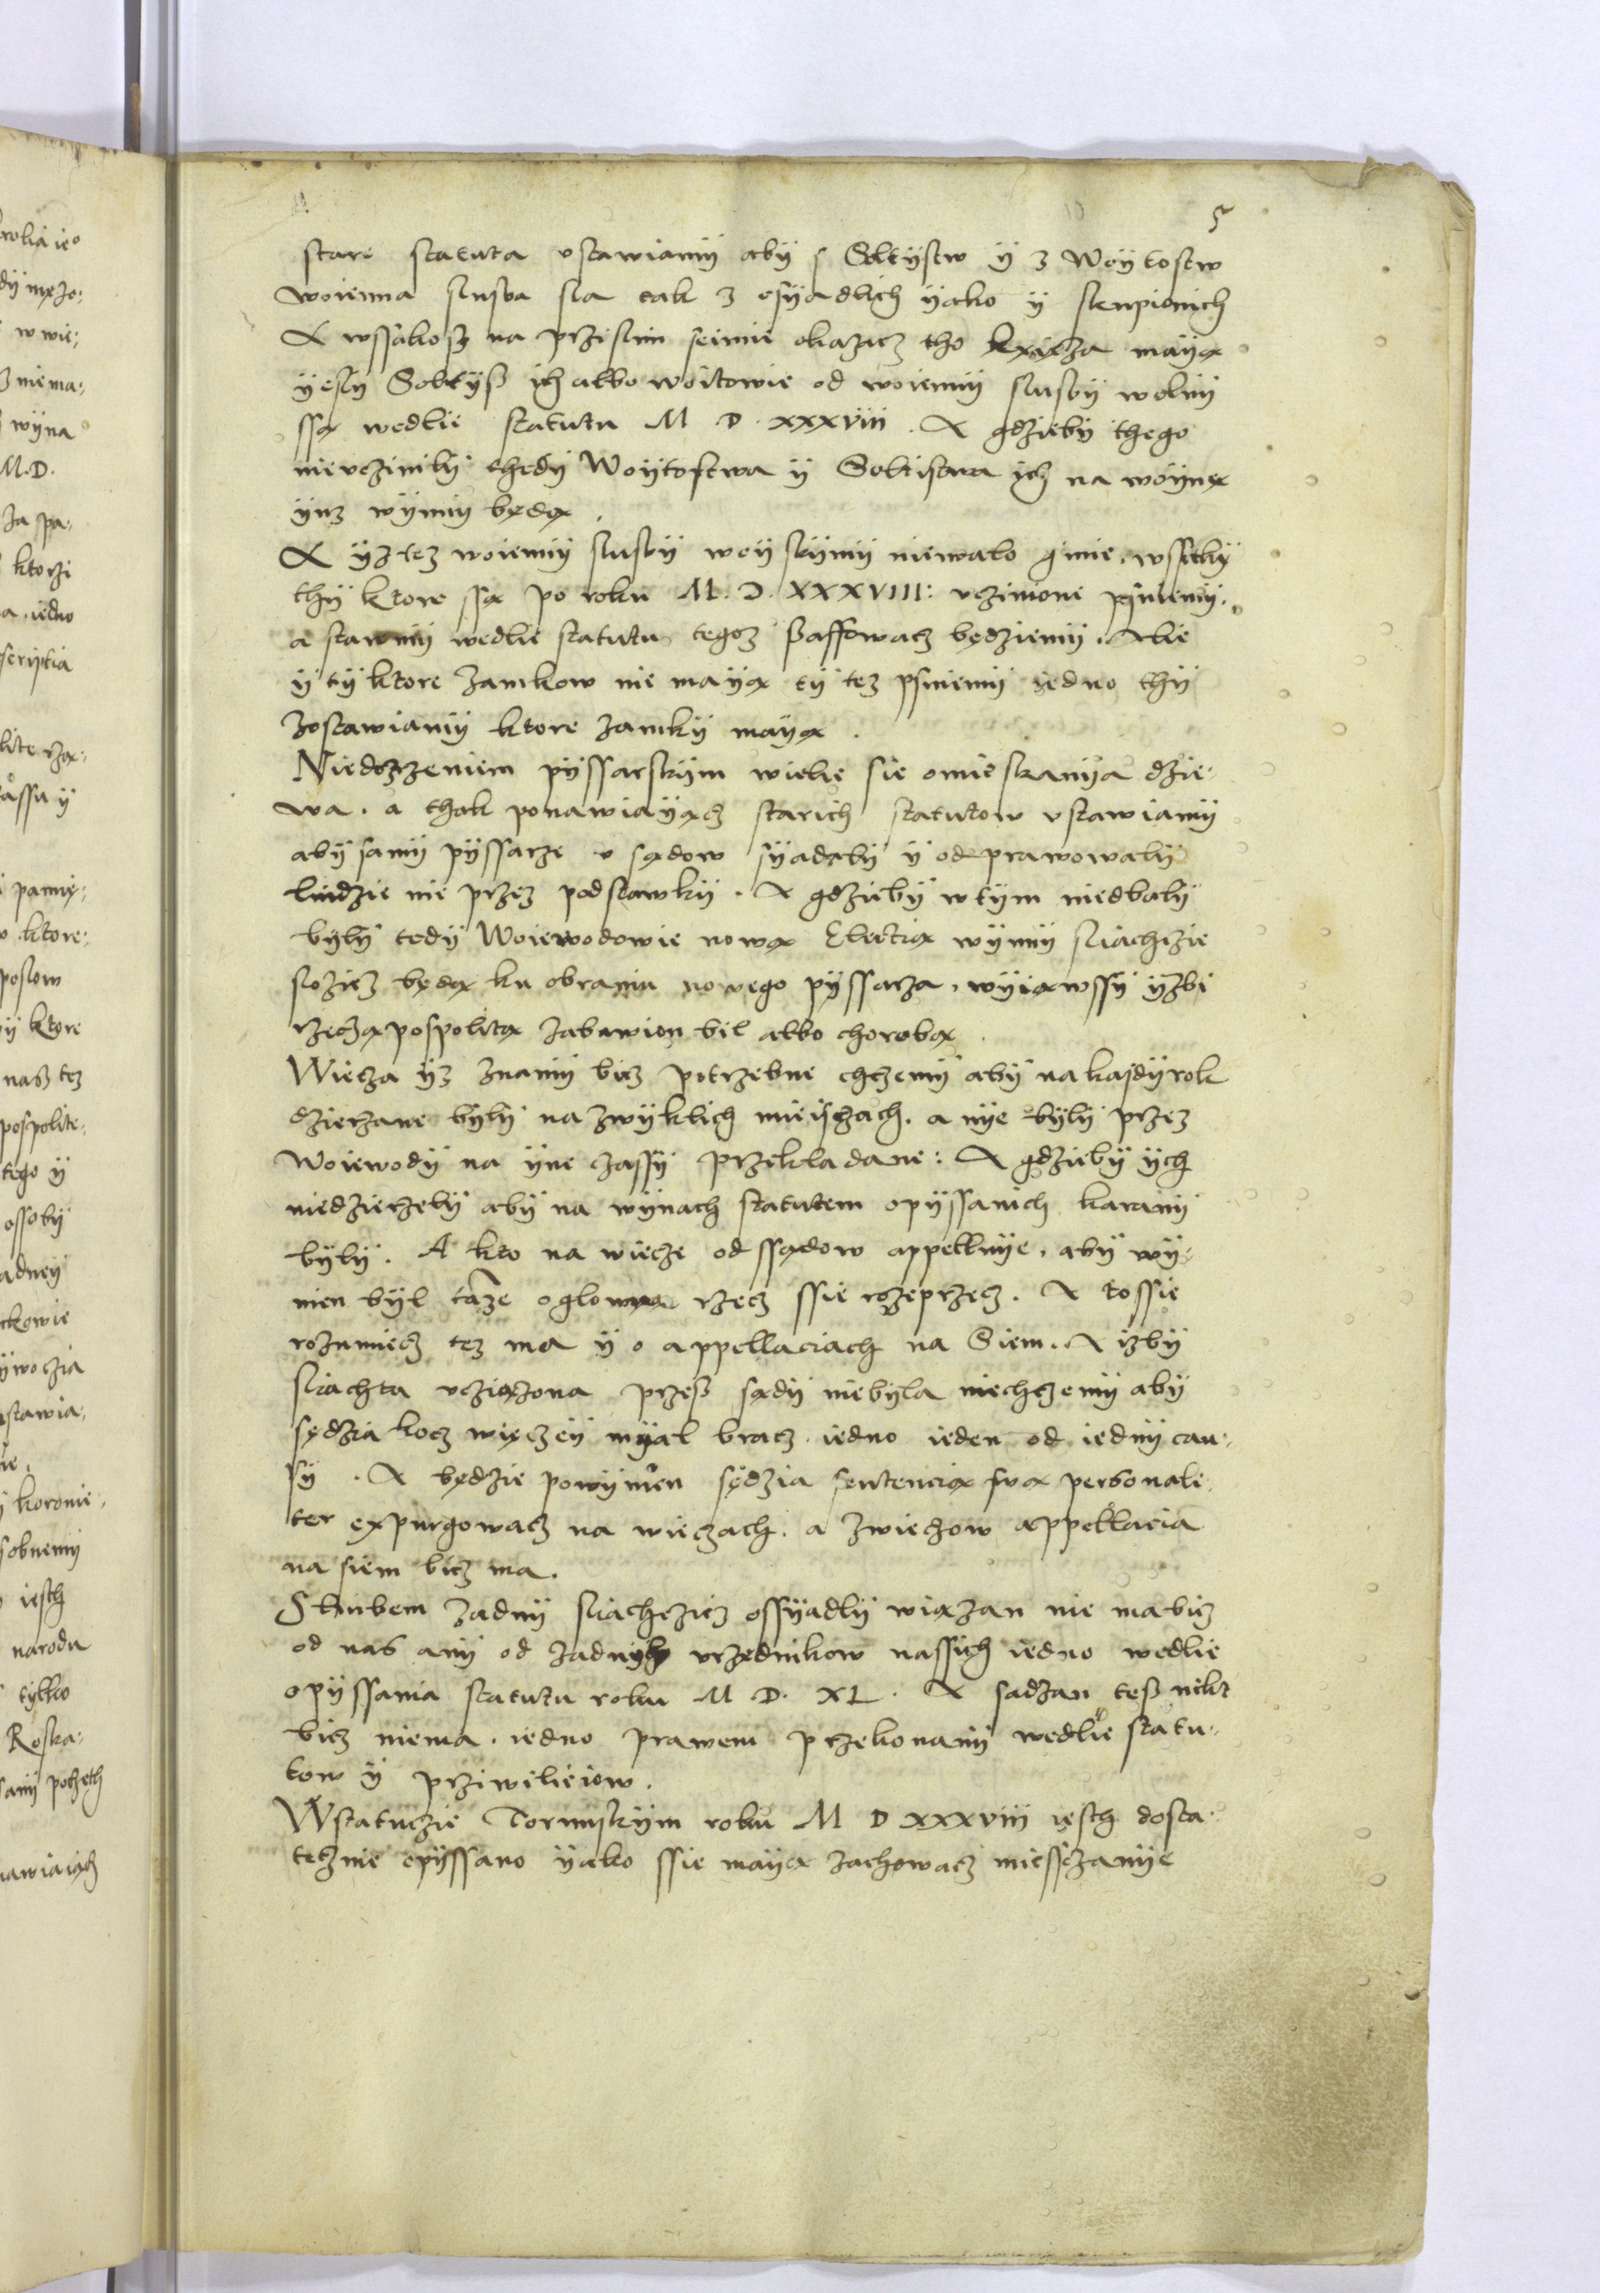 5
stare statuta vstawiamÿ abÿ s Soltÿstw ÿ z Woÿtostw
woienna slusba sla tak z osÿadlich ÿako ÿ skupionich
A wssakosz na przislim seimie okazicz tho kxieza maÿa
ÿeslÿ Soltÿß ich albo woitowie od woiennÿ slusbÿ wolnÿ
ssa wedlie statutu M D XXXVIII. A gdziebÿ thego
nievczinilÿ thedÿ Woÿtostwa ÿ Soltistwa ich na woÿnę
ÿnz wÿnnÿ będą.
A ÿz tez woiennÿ slusbÿ woÿskimÿ niemalo ginie, wsitkÿ
thÿ ktore ssa po roku M. D. XXXVIII: vczinione psuiemÿ,
a stawmÿ wedlie statutu tegoz ßaffowacz będziemÿ. Alie
ÿ tÿ ktore zamkow nie maÿą tÿ tez psuiemÿ iedno thÿ
zostawiamÿ ktore zamkÿ maÿą.
Niedozrzeniem pÿssarskÿm wielie sie omieskanÿa dzie-
wa. a thak ponawiaÿącz starich statutow vstawiamÿ
abÿ samÿ pÿssarze v sądow sÿadalÿ ÿ odprawowalÿ
liudzie nie przez podstawkÿ. A gdziebÿ w tÿm niedbalÿ
bÿlÿ tedÿ Woiewodowie nowa Electia wÿnnÿ sliachczie
slozicz będą ku obraniu nowego pÿssarza, wÿiąwssÿ ÿzbi
rzeczapospolitą zabawion bil albo chorobą.
Wiecza ÿz znamÿ bicz potrzebne chczemÿ abÿ na kazdÿ rok
dzierzane bÿlÿ na zwÿklich mieisczach, a nÿe bÿlÿ przez
Woiewodÿ na ÿne czassÿ przekladane: A gdziebÿ ÿch
niedzierzelÿ abÿ na wÿnach statutem opÿssanich karanÿ
bÿlÿ. A kto na wiecze od ssądow appelluÿe, abÿ wÿ-
nien bÿl taze o glowną rzecz ssie rozeprzecz. A tossie
rozumiecz tez ma ÿ o appellaciach na Siem. A izbÿ
sliachta vcziązona przeß sądÿ niebÿla niechczemÿ abÿ
sędzia kocz więczeÿ mÿal bracz iedno ieden od iednÿ cau-
sÿ. A będzie powÿnien sędzia sentencią sva personali-
ter expurgowacz na wieczach. a z wieczow appellacia
na siem bicz ma.
Slubem zadnÿ sliachczicz ossÿadlÿ wiązan nie ma bicz
od nas anÿ od zadnÿch vrzędnikow nassich iedno wedlie
opÿssania statutu roku M D. XL. A sadzan teß nikt
bicz niema. iedno prawem przekonanÿ wedlie statu-
tow ÿ przÿwilieiow.
W statuczie Torunskÿm roku M D XXXVIII iesth dosta-
tecznie opÿssano ÿako ssie maÿą zachowacz miesczanÿe